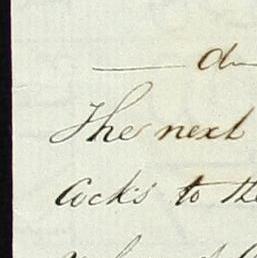 The next
Cocks to the